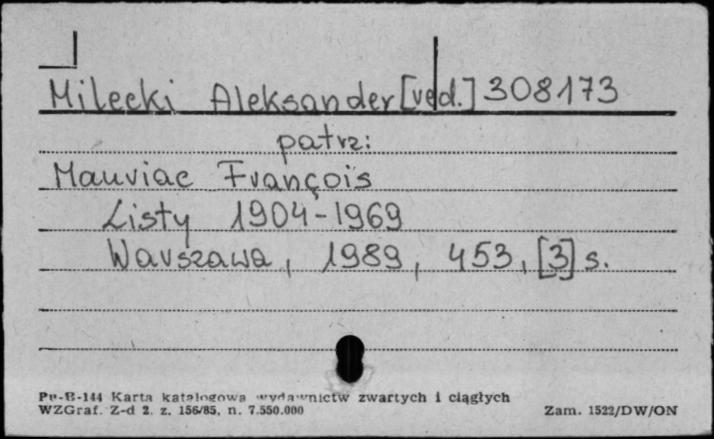 Milecki Aleksander [red.] 308173
patrz:
Mauriac François
Listy 1904-1969
Warszawa, 1989, 453, [3] s.
Pu-B-144 Karta katalogowa wydawnictw zwartych i ciągłych
WZGraf. Z-d 2. z. 156/85. n. 7.550.000
Zam. 1522/DW/ON